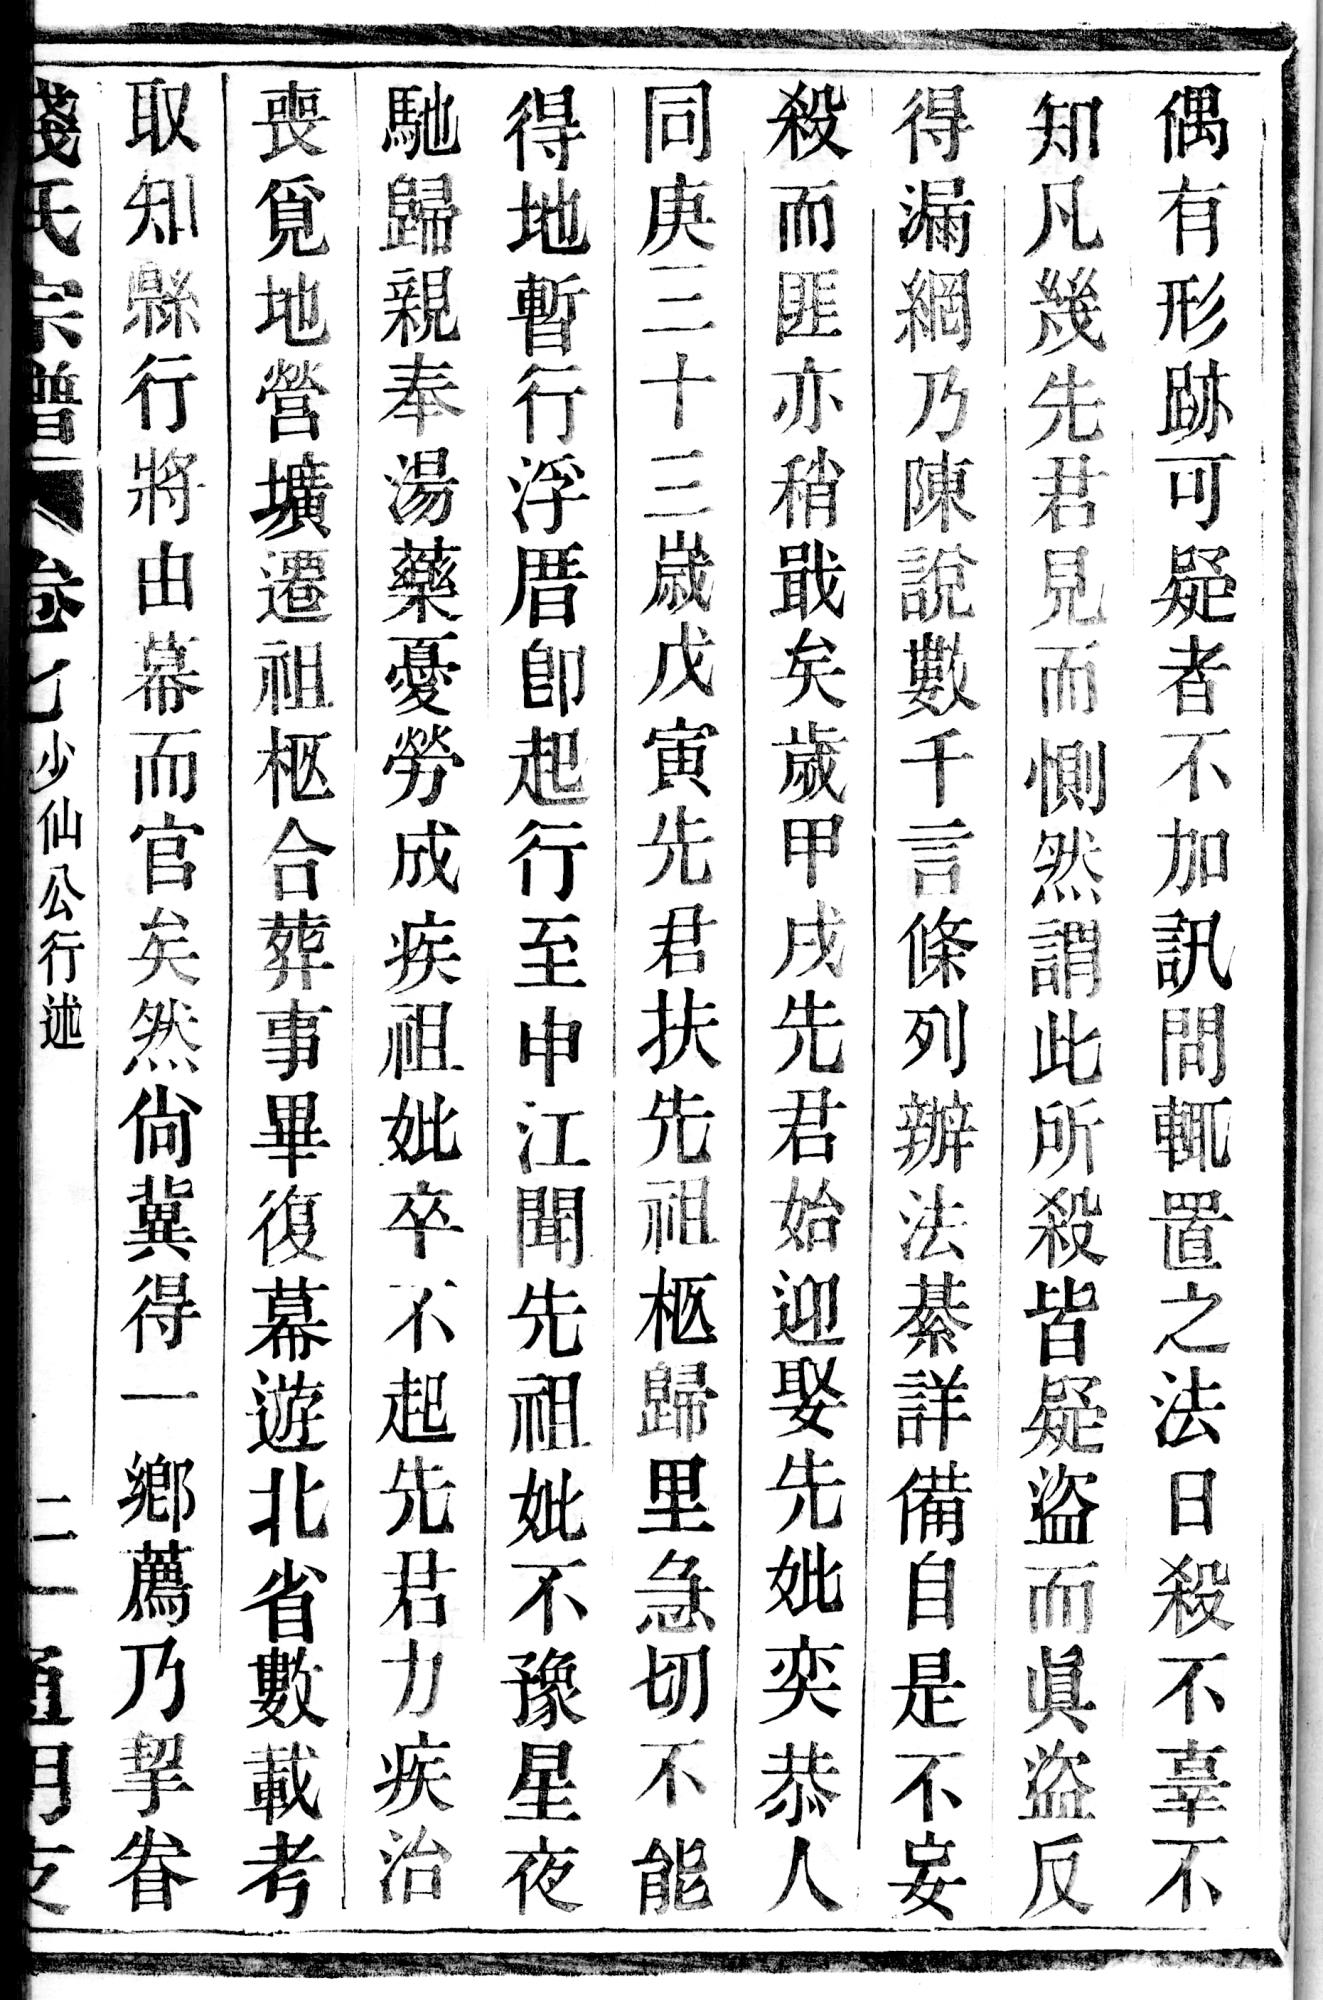 偶有形跡可疑者不加訊問輒置之法日殺不辜不
知凡幾先君見而惻然謂此所殺皆疑盜而眞盜反
得漏網乃陳說數千言條列辦法綦詳備自是不妄
殺而匪亦稍戢矣歲甲戌先君始迎娶先妣奕恭人
同庚三十三歲戊寅先君扶先祖祖柩歸里急切不能
得地暫行浮厝卽起行至申江聞先祖妣不豫星夜
馳歸親奉湯藥憂勞成疾祖妣卒不起先君力疾治
喪覓地營壙遷祖柩合葬事畢復幕遊北省數載考
取知縣行將由幕而官矣然尙冀得一鄉薦乃挈眷
氏宗譜 卷七 少仙公行述 二一 通明支